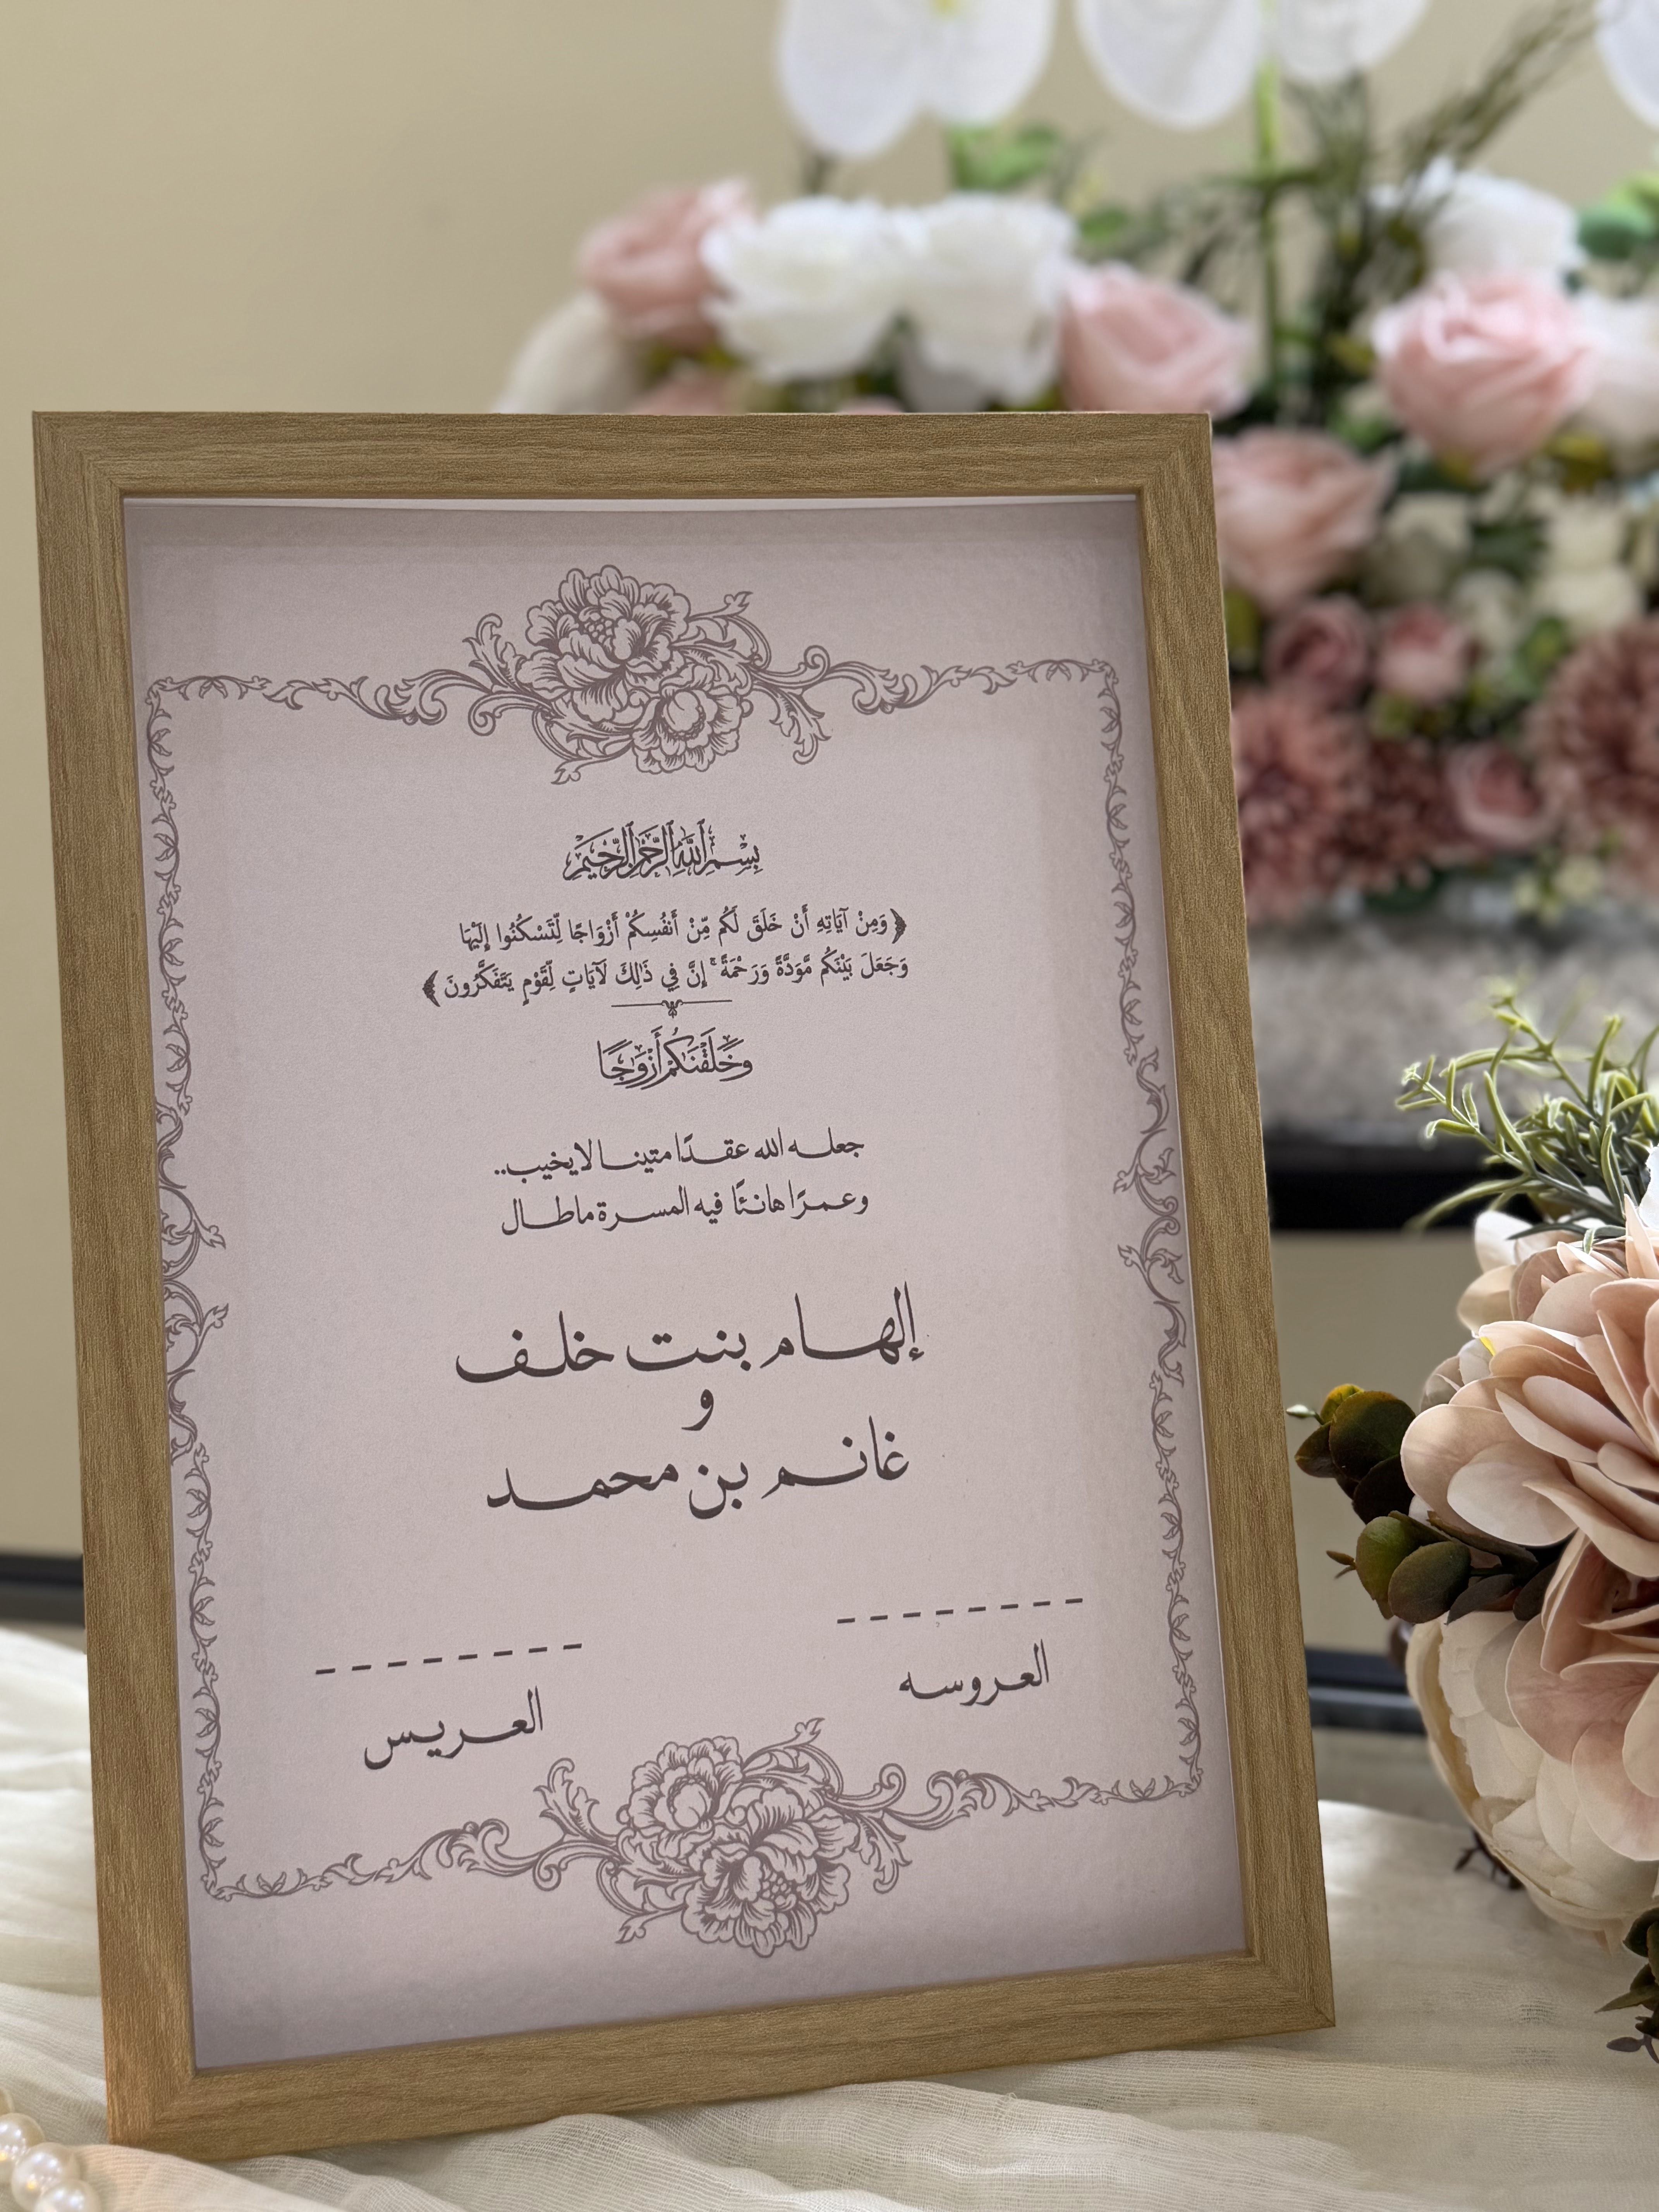 بِسْمِ ٱللَّهِ ٱلرَّحْمَٰنِ ٱلرَّحِيمِ
﴿ وَمِنْ آيَاتِهِ أَنْ خَلَقَ لَكُم مِّنْ أَنفُسِكُمْ أَزْوَاجًا لِّتَسْكُنُوا إِلَيْهَا
وَجَعَلَ بَيْنَكُم مَّوَدَّةً وَرَحْمَةً ۚ إِنَّ فِي ذَٰلِكَ لَآيَاتٍ لِّقَوْمٍ يَتَفَكَّرُونَ ﴾
وَخَلَقْنَٰكُمْ أَزْوَٰجًا
جعله الله عقدًا متينا لا يخيب..
وعمرًا هانئًا فيه المسرة ماطال
إلهام بنت خلف
و
غانم بن محمد
العروسه
العريس